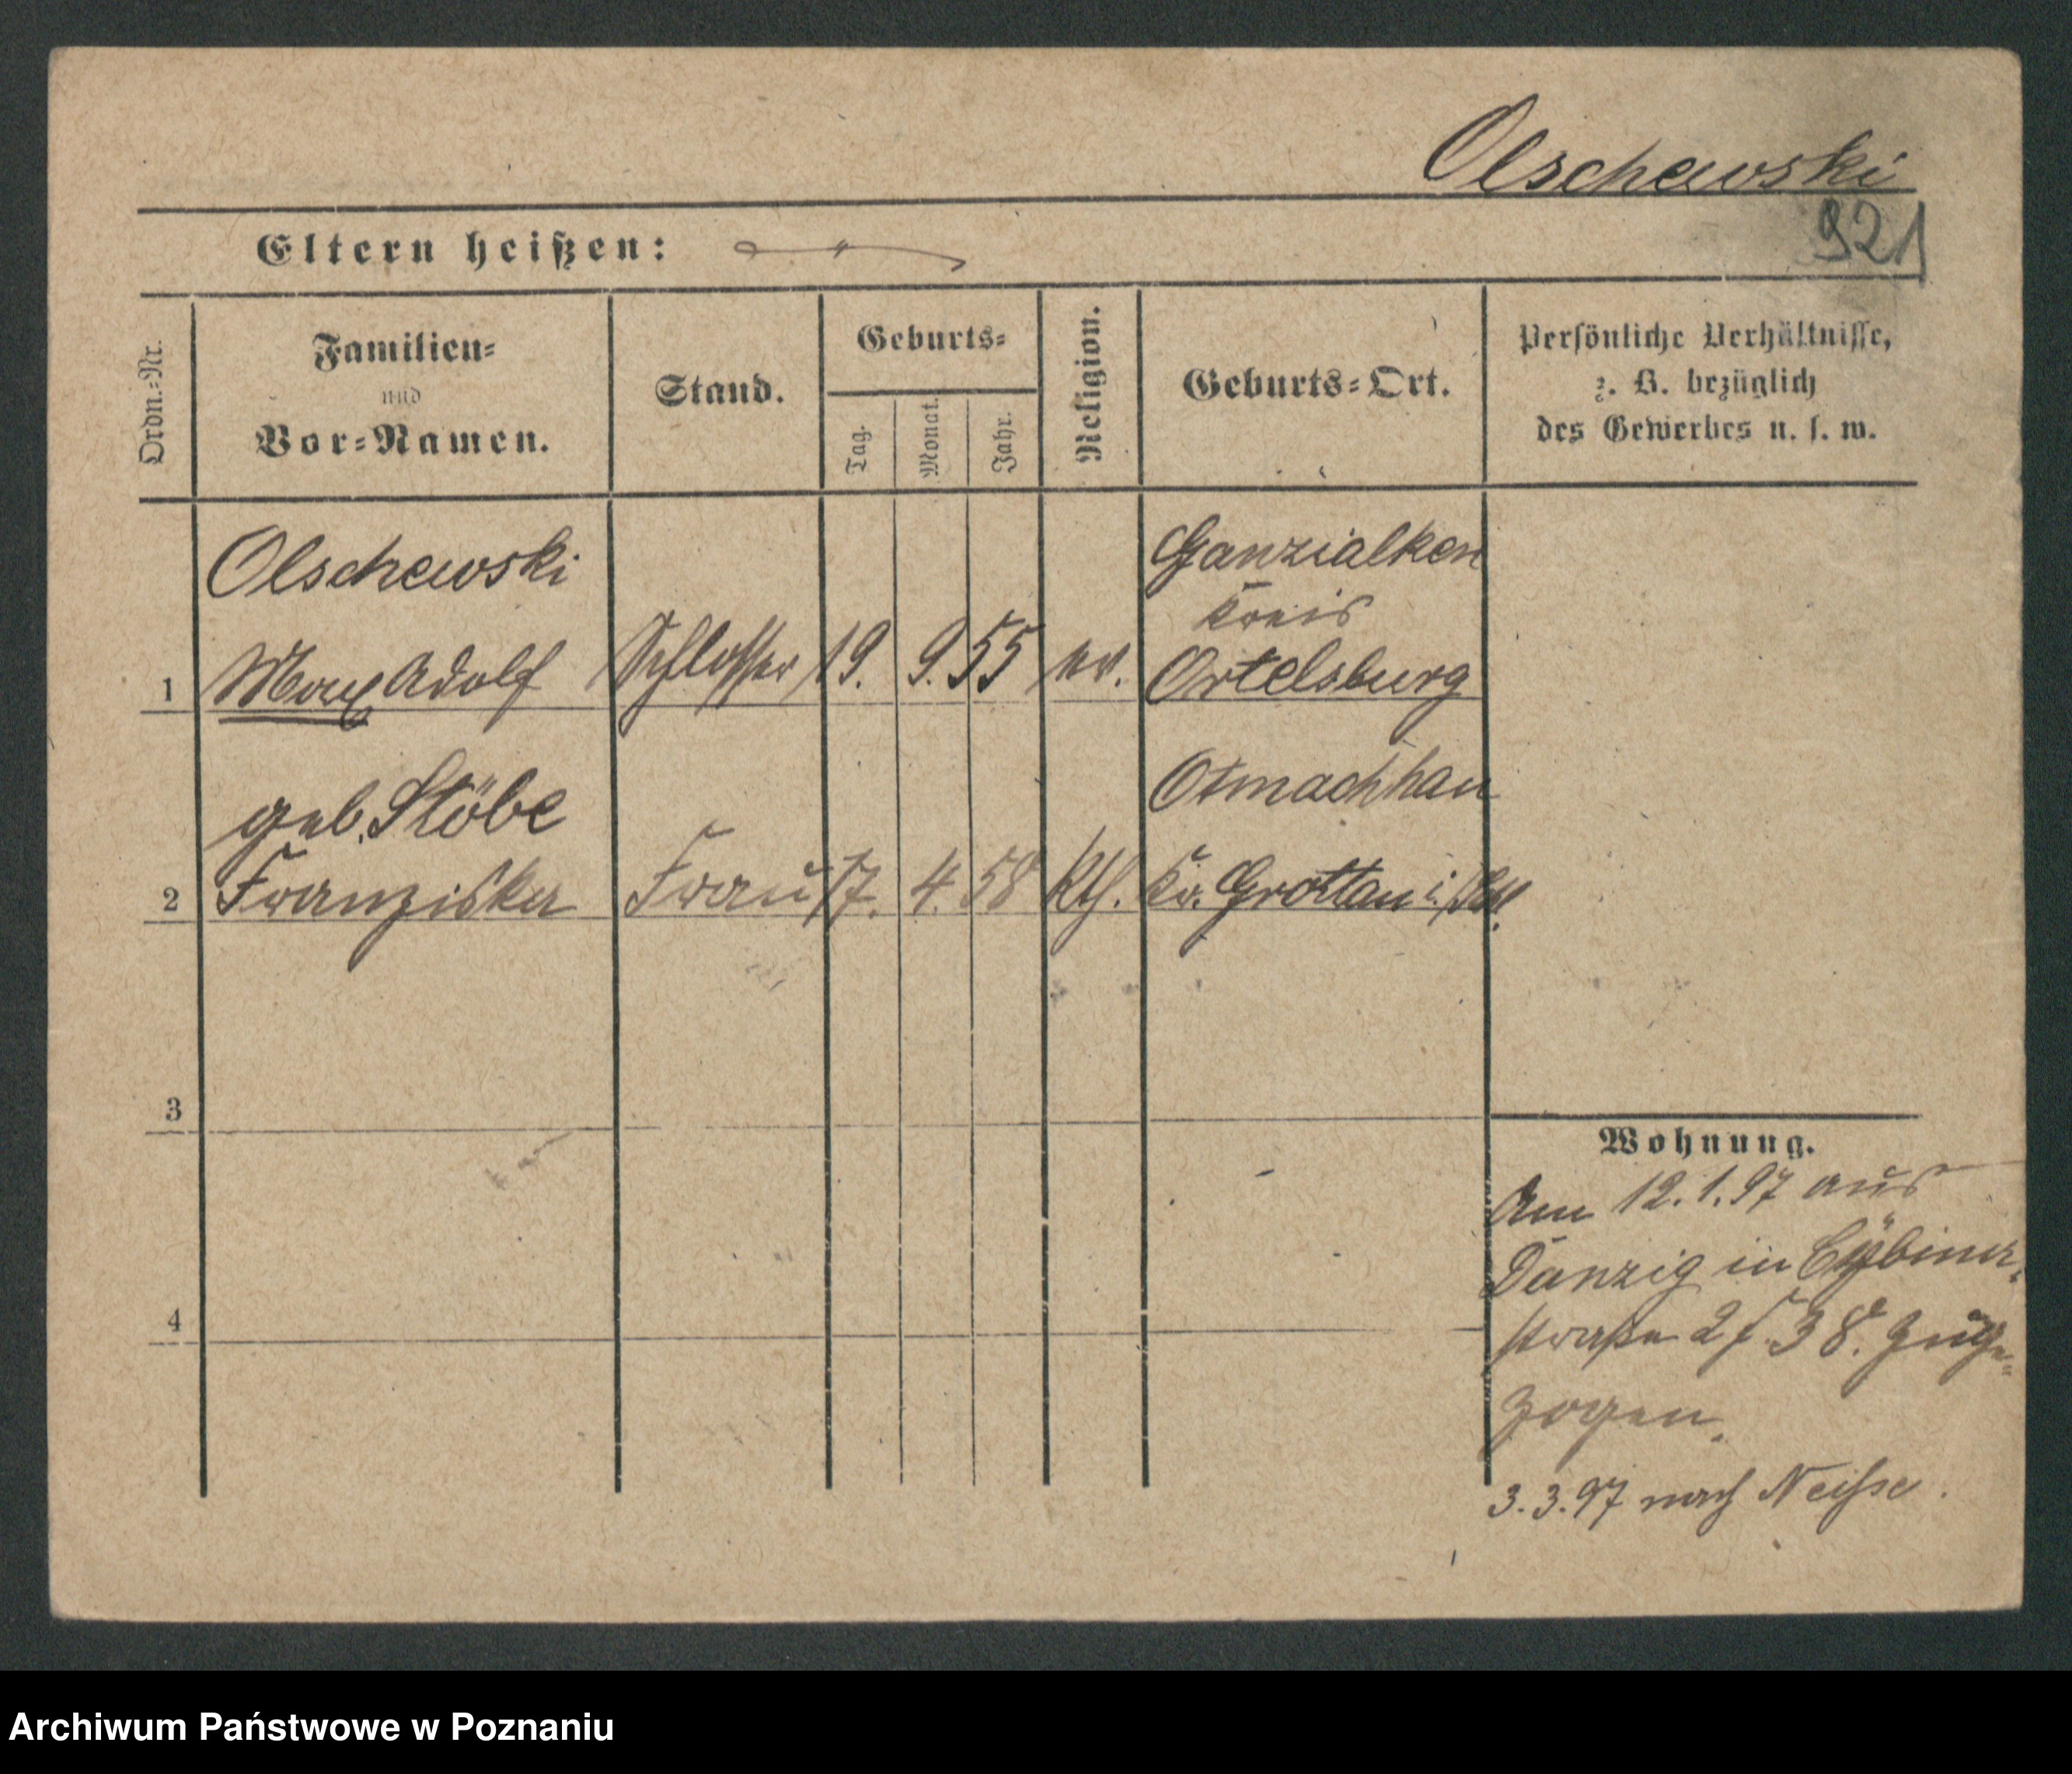 Olschewski
921
Eltern heißen:
Ordn.-Nr.
Familien-
und
Vor-Namen.
Stand.
Geburts-
Tag.
Monat.
Jahr.
Religion.
Geburts-Ort.
Persönliche Verhältnisse,
z. B. bezüglich
des Gewerbes u. s. w.
Olschewski
1 Max Adolf Schlosser 19. 9. 55 ev.
Ganzialken
Kreis
Ortelsburg
geb. Stöbe
2 Franziska Frau 17. 4. 58 kth.
Otmachhau
Kr. Grottau i/Schl.
3
4
Wohnung.
Am 12.1.97 aus
Danzig in Cybiner-
straße 2 38. zuge-
zogen.
3.3.97 nach Neisse.
Archiwum Państwowe w Poznaniu